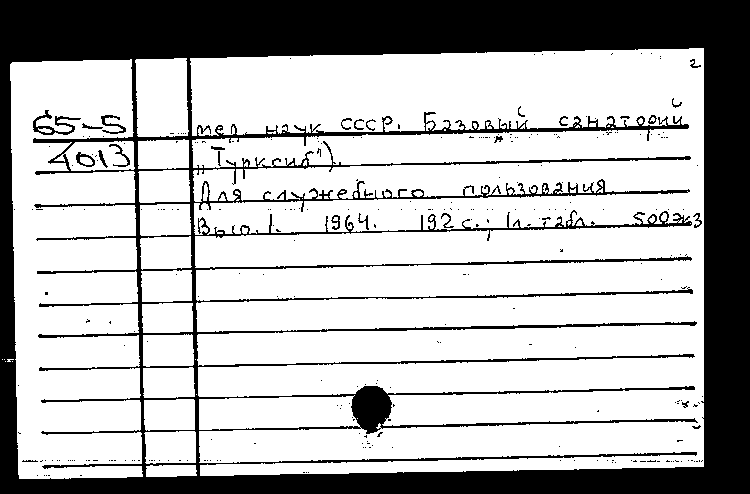 2
65-5 мед. наук СССР. Базовый санаторий
4013 „Турксиб").
Для служебного пользования
Вып. 1. 1964. 192 с.; 1 л. табл. 500экз